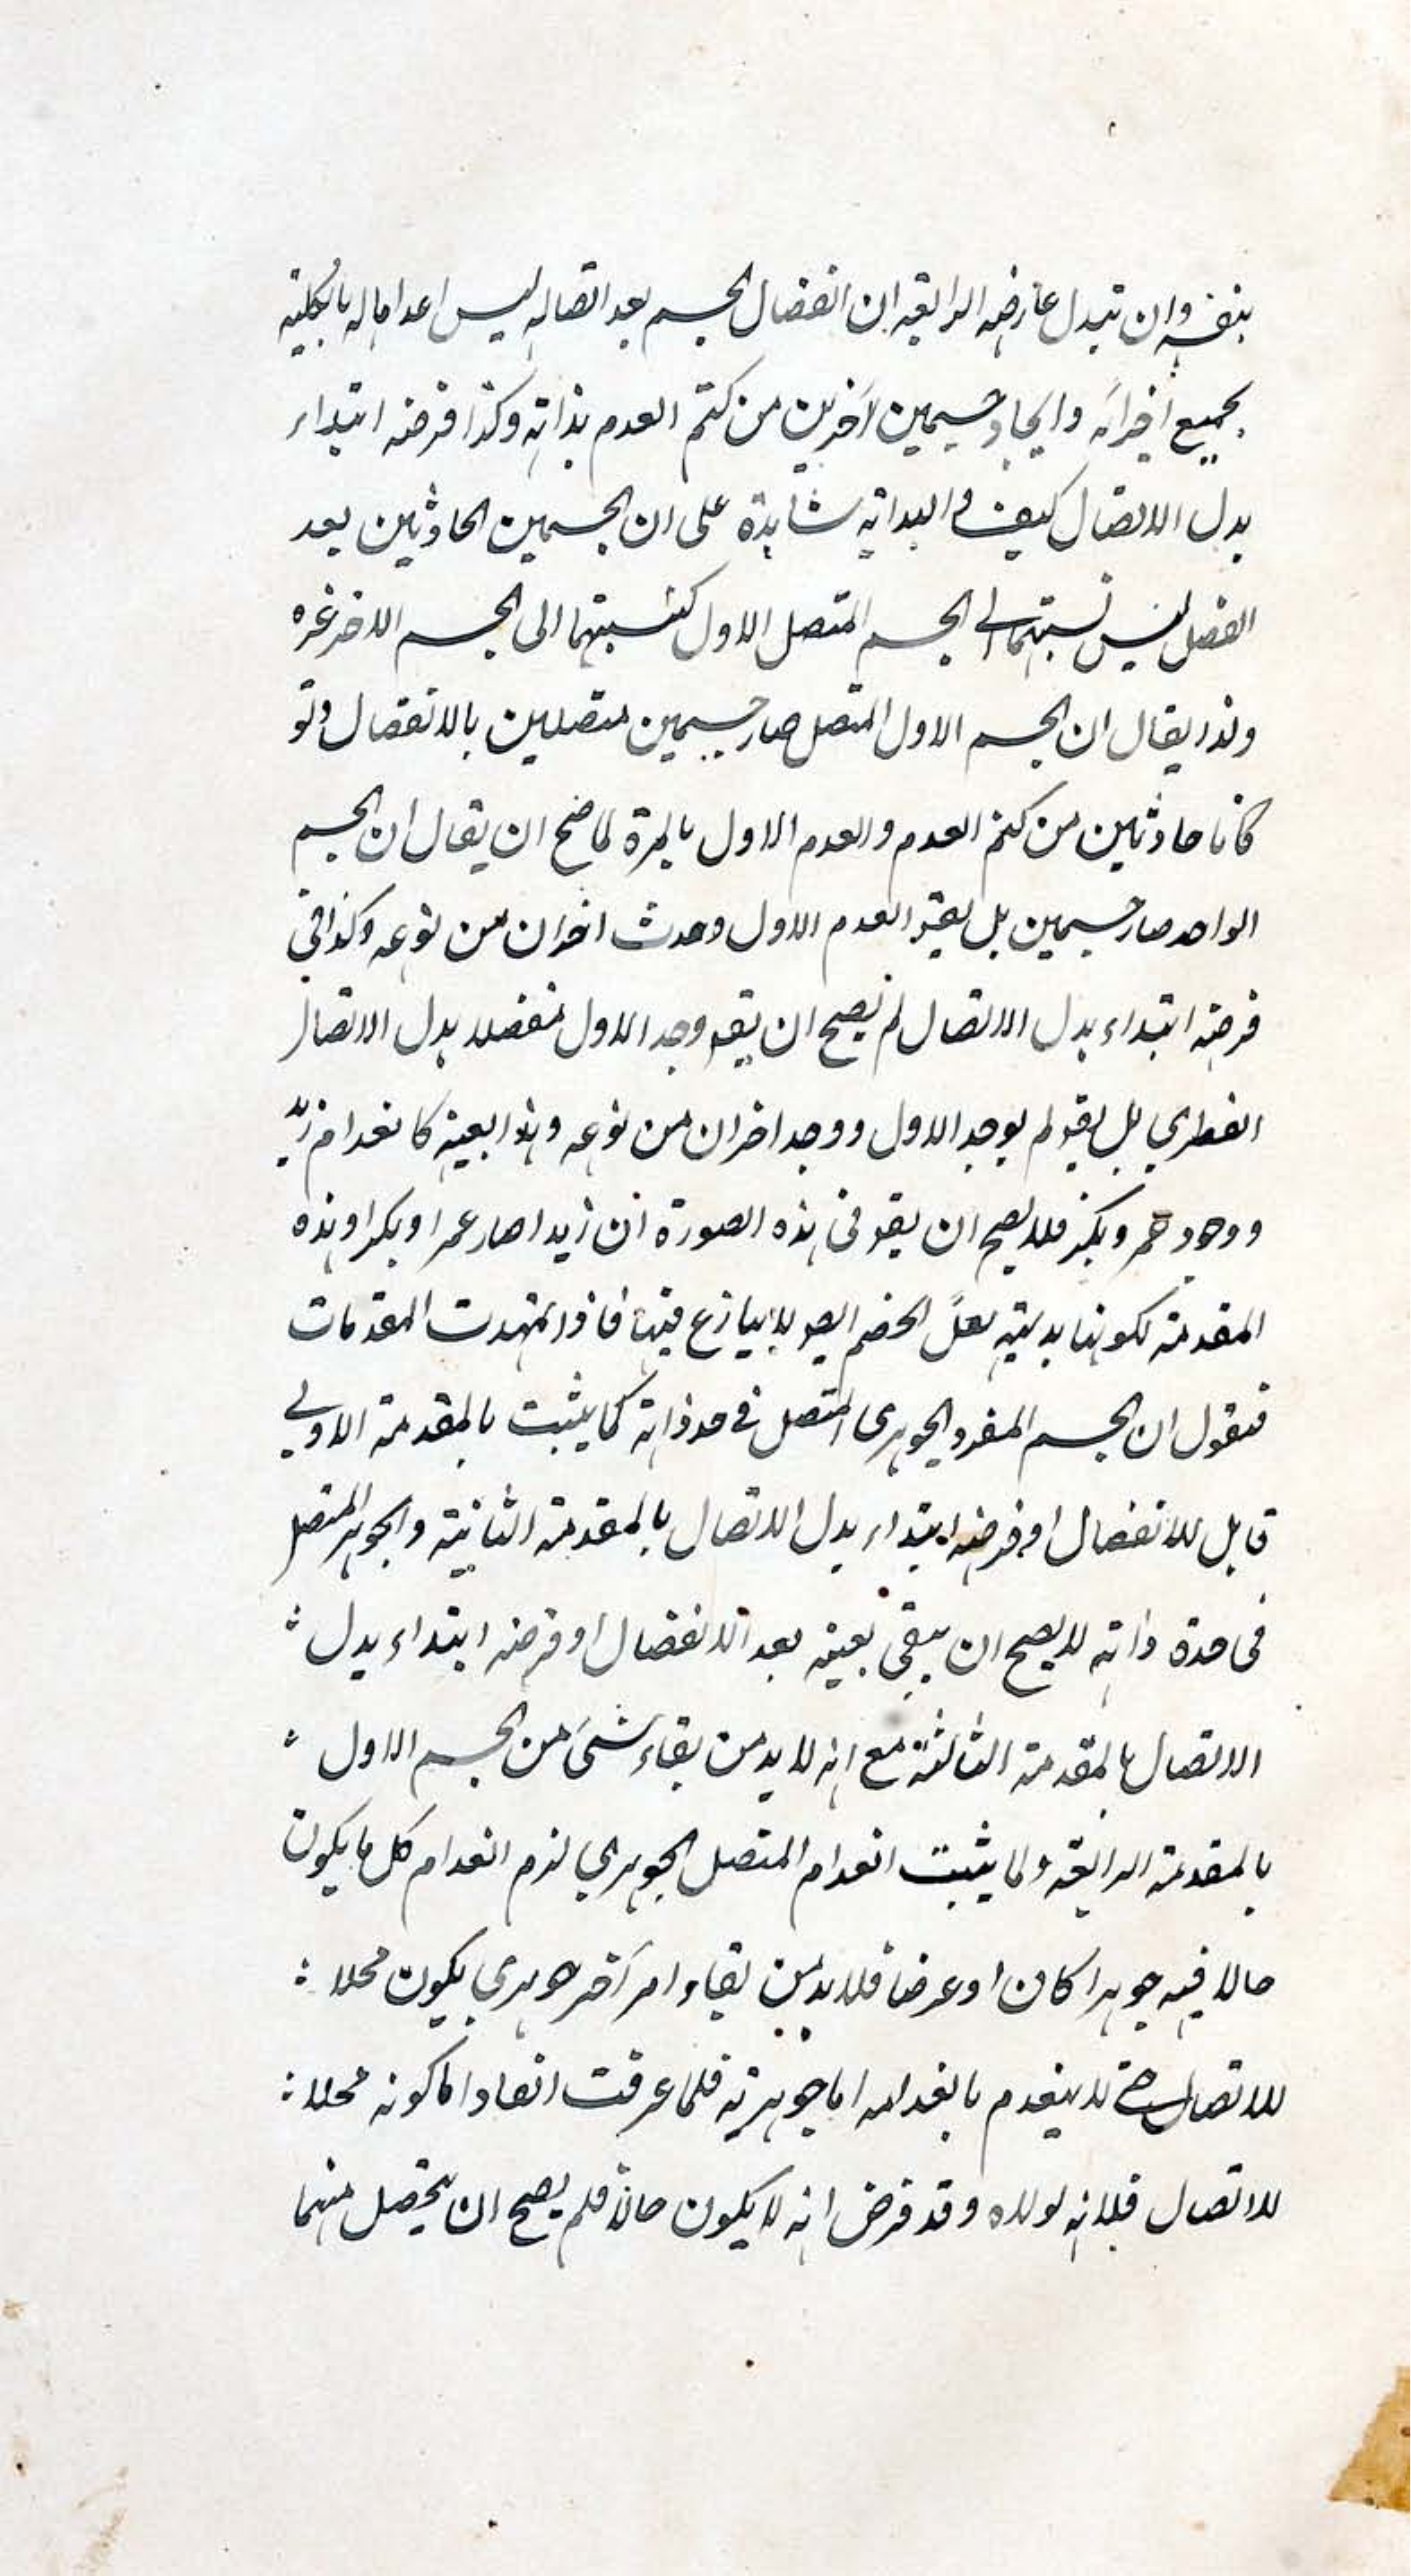 بنفسه وان تبدل عارضه الرابعة ان انفصال الجسم بعد اتصاله ليس اعداما له بالكلية
بجميع اجزائه وايجاد جسمين آخرين من كتم العدم بذاته وكذا فرضه ابتداء
بدل الاتصال كيف والبداهة شاهدة على ان الجسمين الحادثين بعد
الفصل ليس نسبتهما الى الجسم المتصل الاول كنسبتهما الى الجسم الاخر غيره
ولذا يقال ان الجسم الاول المتصل صار جسمين متصلين بالانفصال ولو
كانا حادثين من كتم العدم والعدم الاول بالمرة لما صح ان يقال ان الجسم
الواحد صار جسمين بل يقو العدم الاول وحدث اخران من نوعه وكذا في
فرضه ابتداء بدل الاتصال لم يصح ان يقو وجد الاول منفصلا بدل الاتصال
الفطري بل يقو لم يوجد الاول ووجد اخران من نوعه وهذا بعينه كانعدام زيد
ووجود عمر وبكر فلا يصح ان يقو في هذه الصورة ان زيدا صار عمرا وبكرا وهذه
المقدمة لكونها بديهية لعل الخصم ايضا لا ينازع فيها فاذا تمهدت المقدمات
فنقول ان الجسم المفرد الجوهري المتصل في حد ذاته كما يثبت بالمقدمة الاولى
قابل للانفصال او فرضه ابتداء بدل الاتصال بالمقدمة الثانية والجوهر المتصل
في حدة ذاته لا يصح ان يبقى بعينه بعد الانفصال او فرضه ابتداء بدل
الاتصال بالمقدمة الثالثة مع انه لا بد من بقاء شئ من الجسم الاول
بالمقدمة الرابعة ولما يثبت انعدام المتصل الجوهري لزم انعدام كل ما يكون
حالا فيه جوهرا كان او عرضا فلا بد من بقاء امر آخر جوهري يكون محلا
للاتصال حتى لا ينعدم بانعدامه اما جوهريته فلما عرفت انفا واما كونه محلا
للاتصال فلانه لولاه وقد فرض انه لا يكون حالا فلم يصح ان يحصل منهما